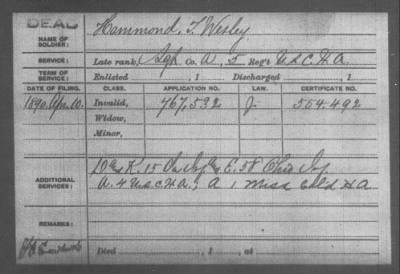 DEAD
NAME OF SOLDIER: Hammond, T. Wesley
SERVICE: Late rank, Sgt Co. A, 5 Reg't U.S.C.H.A.
TERM OF SERVICE: Enlisted , 1 Discharged , 1
DATE OF FILING. CLASS. APPLICATION NO. LAW. CERTIFICATE NO.
1890 Apr. 10. Invalid, 767,532 J. 554.492
Widow,
Minor,
K. 15 E. 58 Ohio Inf
ADDITIONAL SERVICES: A. 4 U.S.C.H.A., A 1 Miss Cold H A
REMARKS:
Died , 1 , at